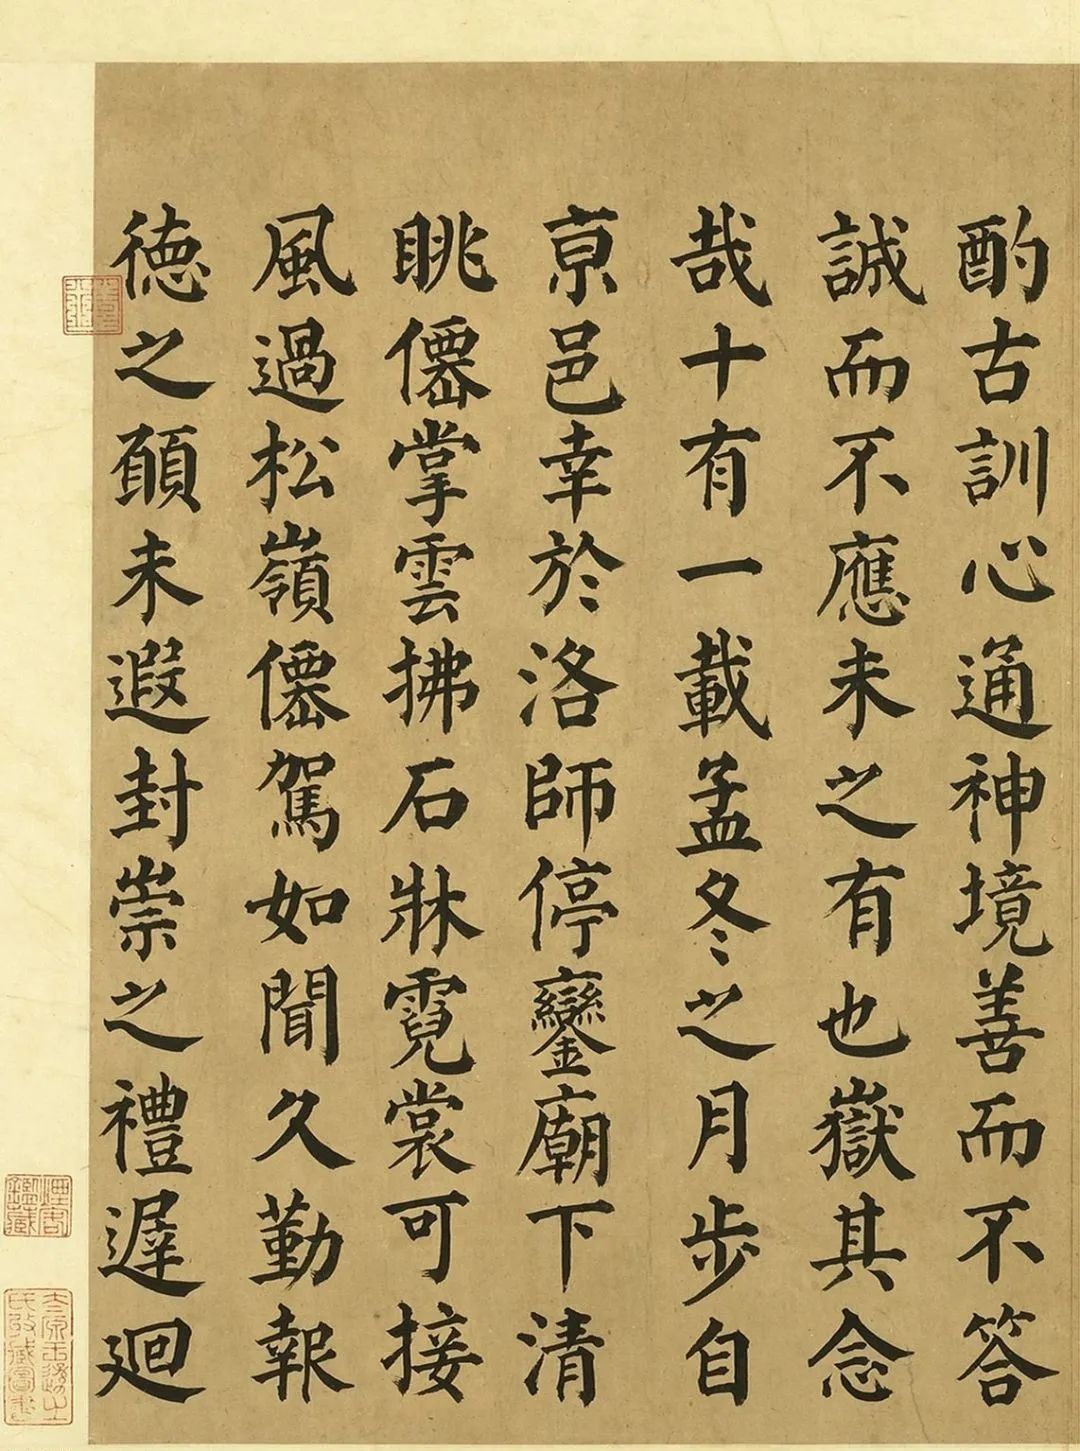 酌古訓心通神境善而不答
誠而不應未之有也嶽其念
哉十有一載孟冬之月步自
亰邑幸於洛師停鑾廟下清
眺僊掌雲拂石牀霓裳可接
風過松嶺僊駕如聞久勤報
徳之願未遐封崇之禮遲迴
煙客鑑藏